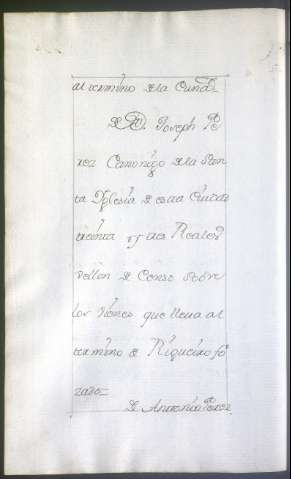 al termino de la Cunda
De D. Joseph Pe
rez Canonigo de la San
ta Yglesia de esta Ciudad
treinta y tres Reales
vellon de Censo sobre
los vienes que lleva al
termino de Riqueixo fo
rales
De Antonia Perez